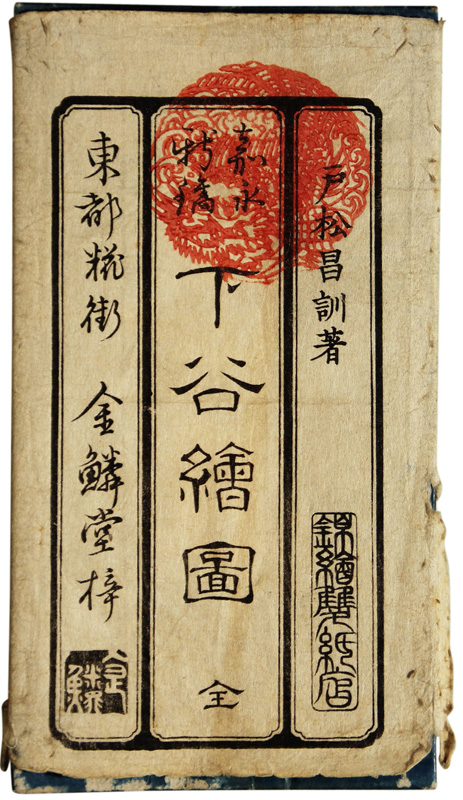 戸松昌訓著
錦繪雙紙店
嘉永
新鐫
下谷繪圖
全
東都糀街 金鱗堂梓
金鱗